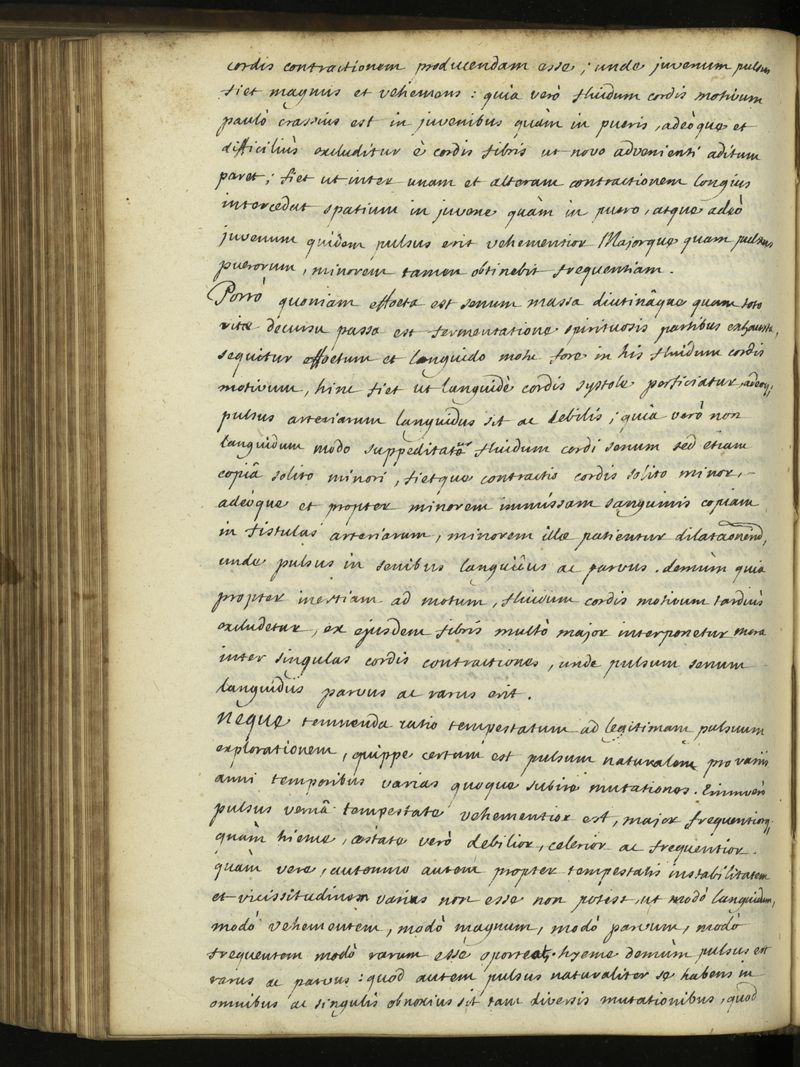 cordis contractionem producendam esse ; unde juvenum pulsus
fiet magnus et vehemens : quia verò fluidum cordis motivum
paulò crassius est in juvenibus quàm in pueris, adeòque et
difficiliùs excluditur è cordis fibris ut novo advenienti aditum
paret ; fiet ut inter unam et alteram contractionem longius
intercedat spatium in juvene quàm in puero, atque adeò
juvenum quidem pulsus erit vehementior Majorque quam pulsus
puerorum, minorem tamen obtinebit frequentiam.
Porrò quoniam effoeta est senum massa diutinâque quam toto
vitæ decursu passa est fermentatione spirituosis partibus exhausta,
sequitur effoetum et languido motu fore in his fluidum cordis
motivum, hinc fiet ut languidè cordis systole perficiatur, adeoq;
pulsus arteriarum languidus sit ac debilis ; quia verò non
languidum modo suppeditatur fluidum cordi senum sed etiam
copiâ solito minori, fietque contractio cordis solito minor, -
adeòque et propter minorem immissam sanguinis copiam
in fistulas arteriarum, minorem illæ patientur dilataõnem,
unde pulsus in senibus languidus ac parvus. demùm quia
propter inertiam ad motum, fluidum cordis motivum tardiùs
excludetur, ex ejusdem fibris multò major interponetur mora
inter singulas cordis contractiones, unde pulsum senum
languidus parvus ac rarus erit.
Neque temnenda ratio tempestatum ad legitimam pulsuum
explorationem, quippe certum est pulsum naturalem pro variis
anni temporibus varias quoque subire mutationes. Enimverò
pulsus vernâ tempestate vehementior est, major frequentiorq;
quàm hieme, æstate verò debilior, celerior ac frequentior.
quàm vere, autumno autem propter tempestatis instabilitatem
et vicissitudinem varius non esse non potest, ut modò languidum,
modò vehementem, modò magnum, modò parvum, modò
frequentem modò rarum esse oporteat. hyeme demùm pulsus est
rarus ac parvus : quod autem pulsus naturaliter se habens in
omnibus ac singulis obnoxius sit tam diversis mutationibus, quod